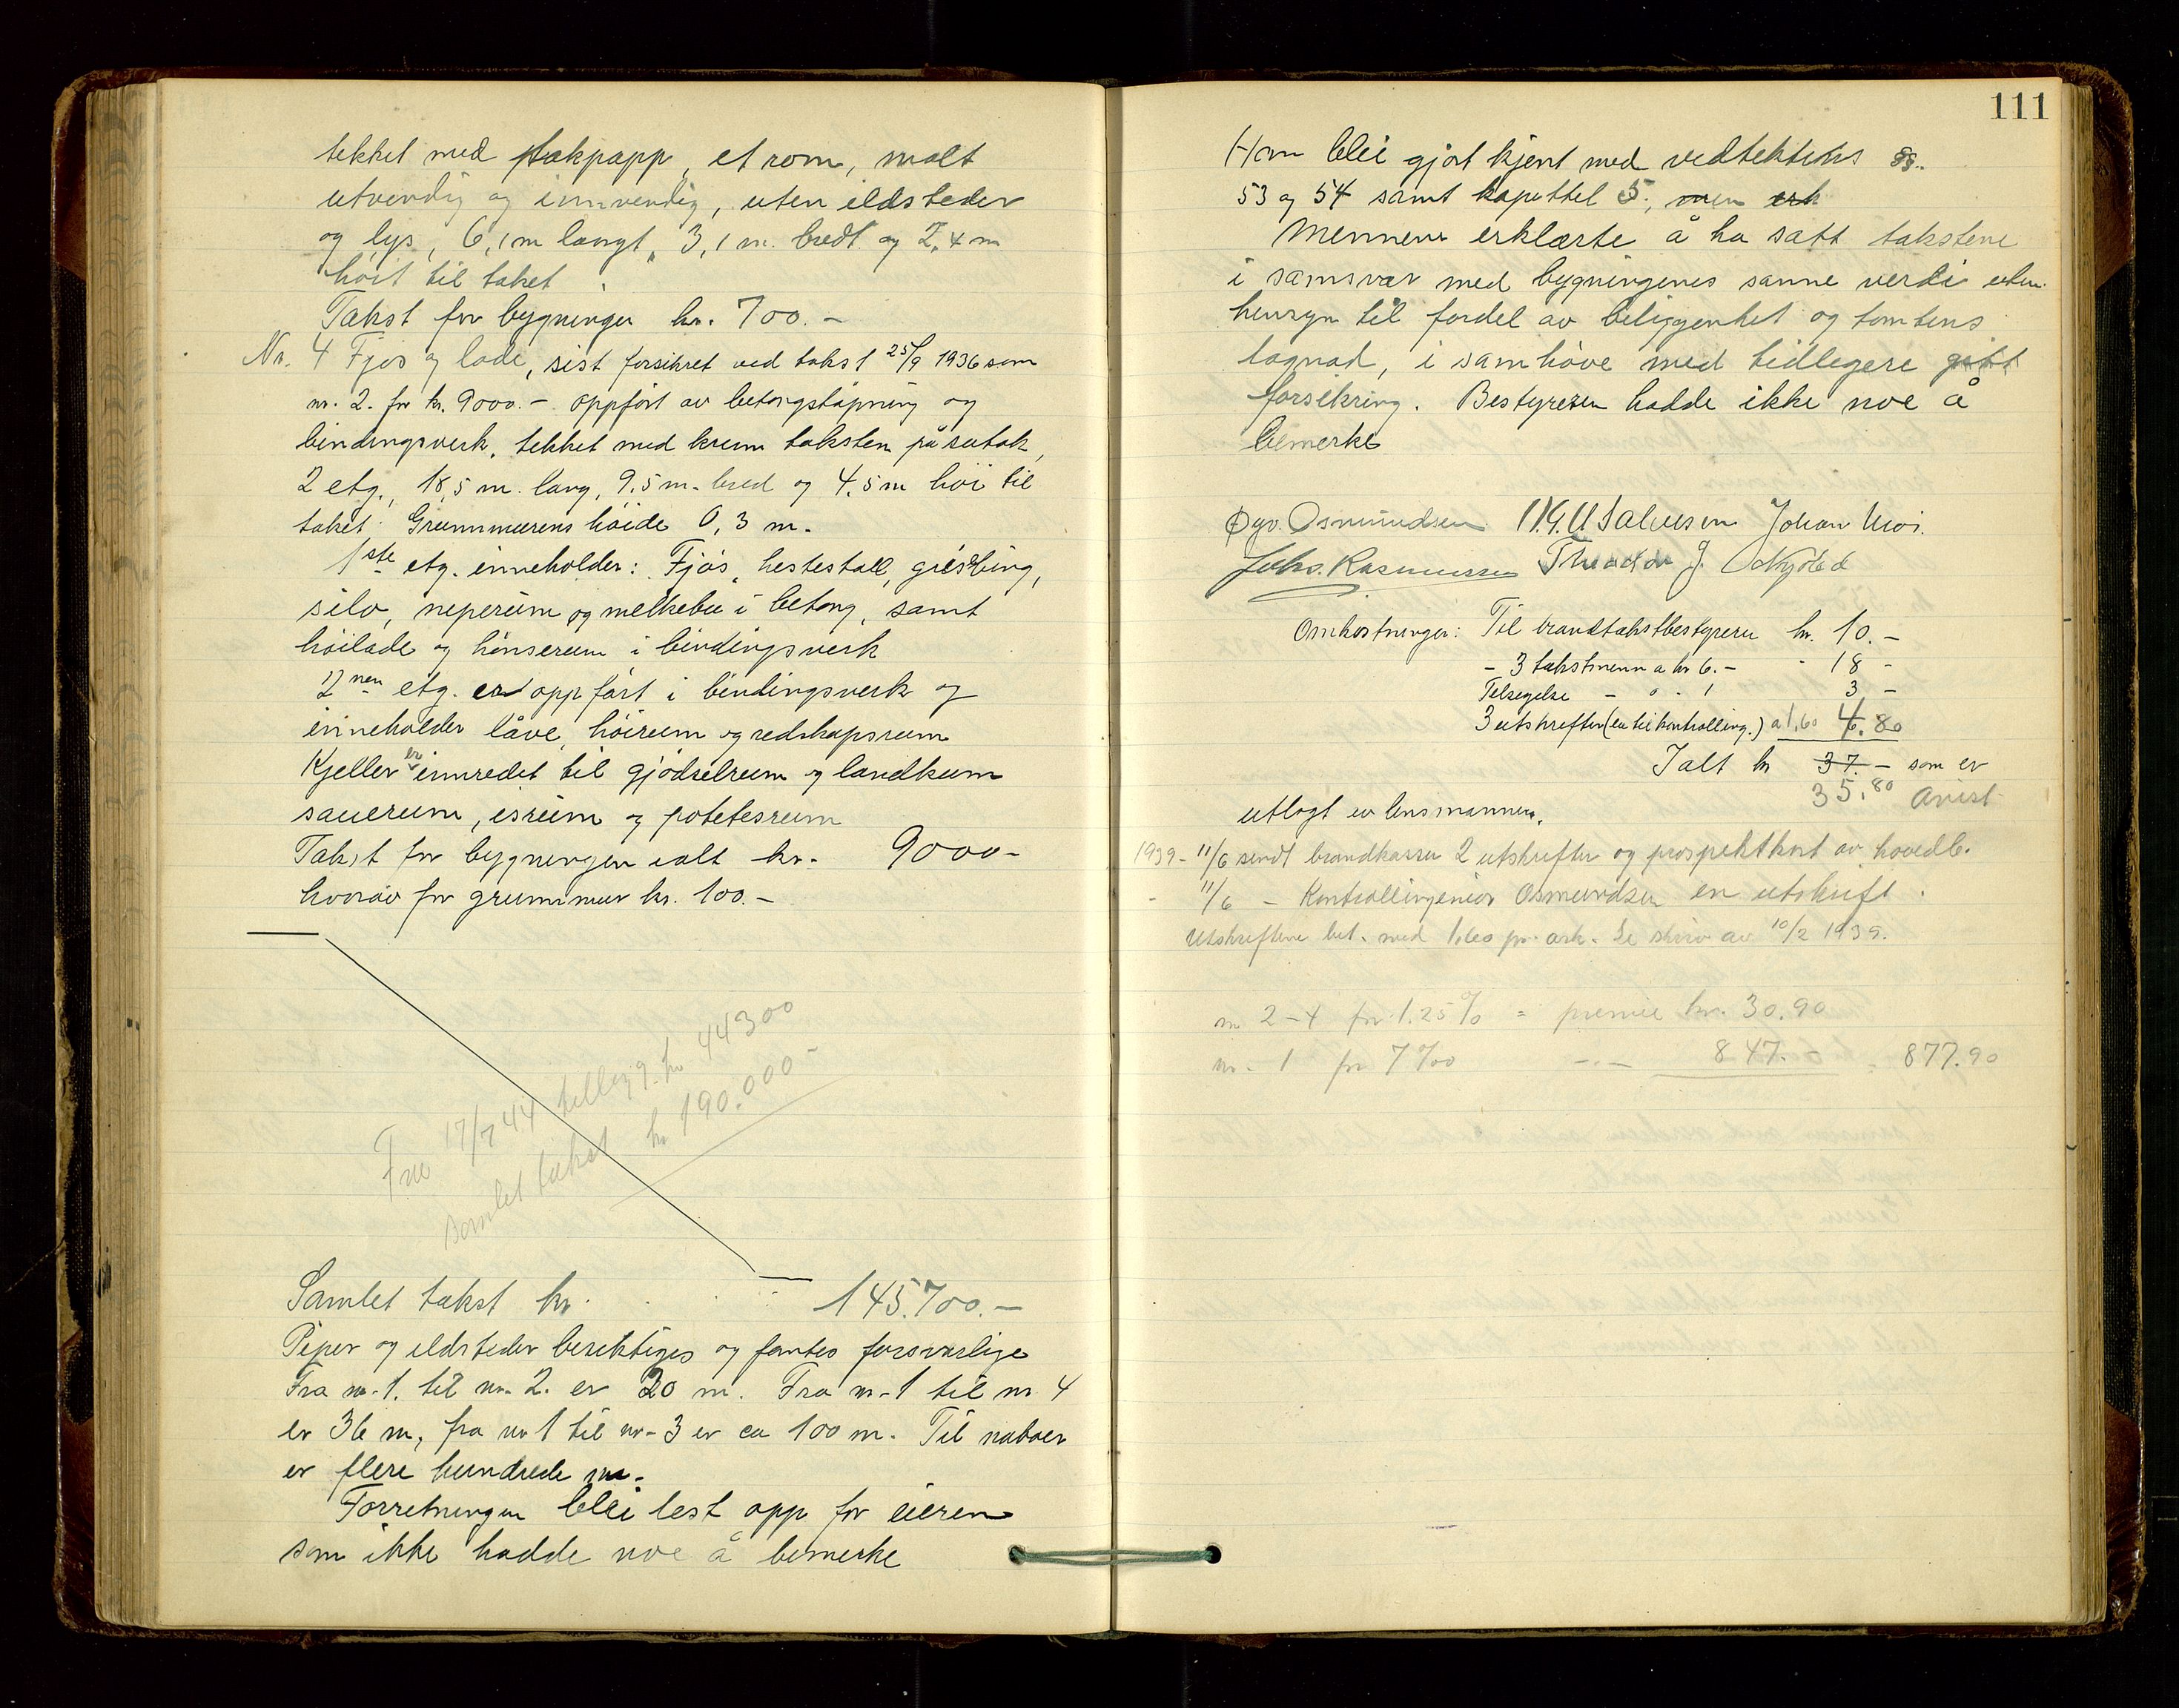 tekket med takpapp, et rom, malt
utvendig og innvendig, uten ildsteder
og lys, 6,1 m langt, 3,1 m. bredt og 2,4 m
høit til taket.
Takst for bygningen kr. 700.-
Nr. 4 Fjos og lade, sist forsikret ved takst 25/9 1936 som
nr. 2. for kr. 9000.- oppført av betongstøpning og
bindingsverk, tekket med krum taksten på sutak,
2 etg., 18,5 m. lang, 9,5 m. bred og 4,5 m høi til
taket. Grunnmurens høide 0,3 m.
1ste etg. inneholder: Fjøs, hestestall, grisebing,
silo, neperum og melkebu i betong, samt
høilade og hønserum i bindingsverk
2nen etg. er oppført i bindingsverk og
inneholder låve, høirum og redskapsrum
Kjeller er innredet til gjødselrum og landkum
sauerum, isrum og potetesrum
Takst for bygningen ialt kr. 9000-
hvorav for grunnmur kr. 100.-
Fra 17/7 44 tillegg. kr 44300
samlet takst kr 190.000-
Samlet takst kr. 145.700.-
Piper og ildsteder besiktiges og fantes forsvarlige
Fra nr. 1. til nr. 2. er 20 m. Fra nr. 1 til nr 4
er 36 m, fra nr 1 til nr. 3 er ca 100 m. Til naboer
er flere hundrede m.
Forretningen blei lest opp for eieren
som ikke hadde noe å bemerke
111
Han blei gjort kjent med vedtektenes §§..
53 og 54 samt kapittel 5., men erk
Mennene erklærte å ha satt takstene
i samsvar med bygningenes sanne verdi uten
hensyn til fordel av beliggenhet og tomtens
lagnad, i samhøve med tidligere gitt
forsikring. Bestyreren hadde ikke noe å
bemerke
Øyv. Osmundsen Salvesen Johan Moi.
Johs. Rasmussen Theodor J. Nysted
Omkostninger: Til brandtakstbestyreren kr. 10.-
- 3 takstmenn a kr 6.- - 18 -
Tilsigelse - " - 1 3 -
3 utskrifter (en til kontrolling.) a 1,60 4.80
Ialt kr 37.- som er
35.80 Anvist
utlagt av lensmannen.
1939 - 11/6 sendt brandkassen 2 utskrifter og prospektkort av hovedb.
- 11/6 - Kontrollingeniør Osmundsen en utskrift.
Utskriftene bet. med 1,60 pr. ark. Se skriv av 10/2 1939.
nr 2-4 for 1.25% = premie kr. 30.90
nr. 1 for 7‰ -"- 847.- 877.90